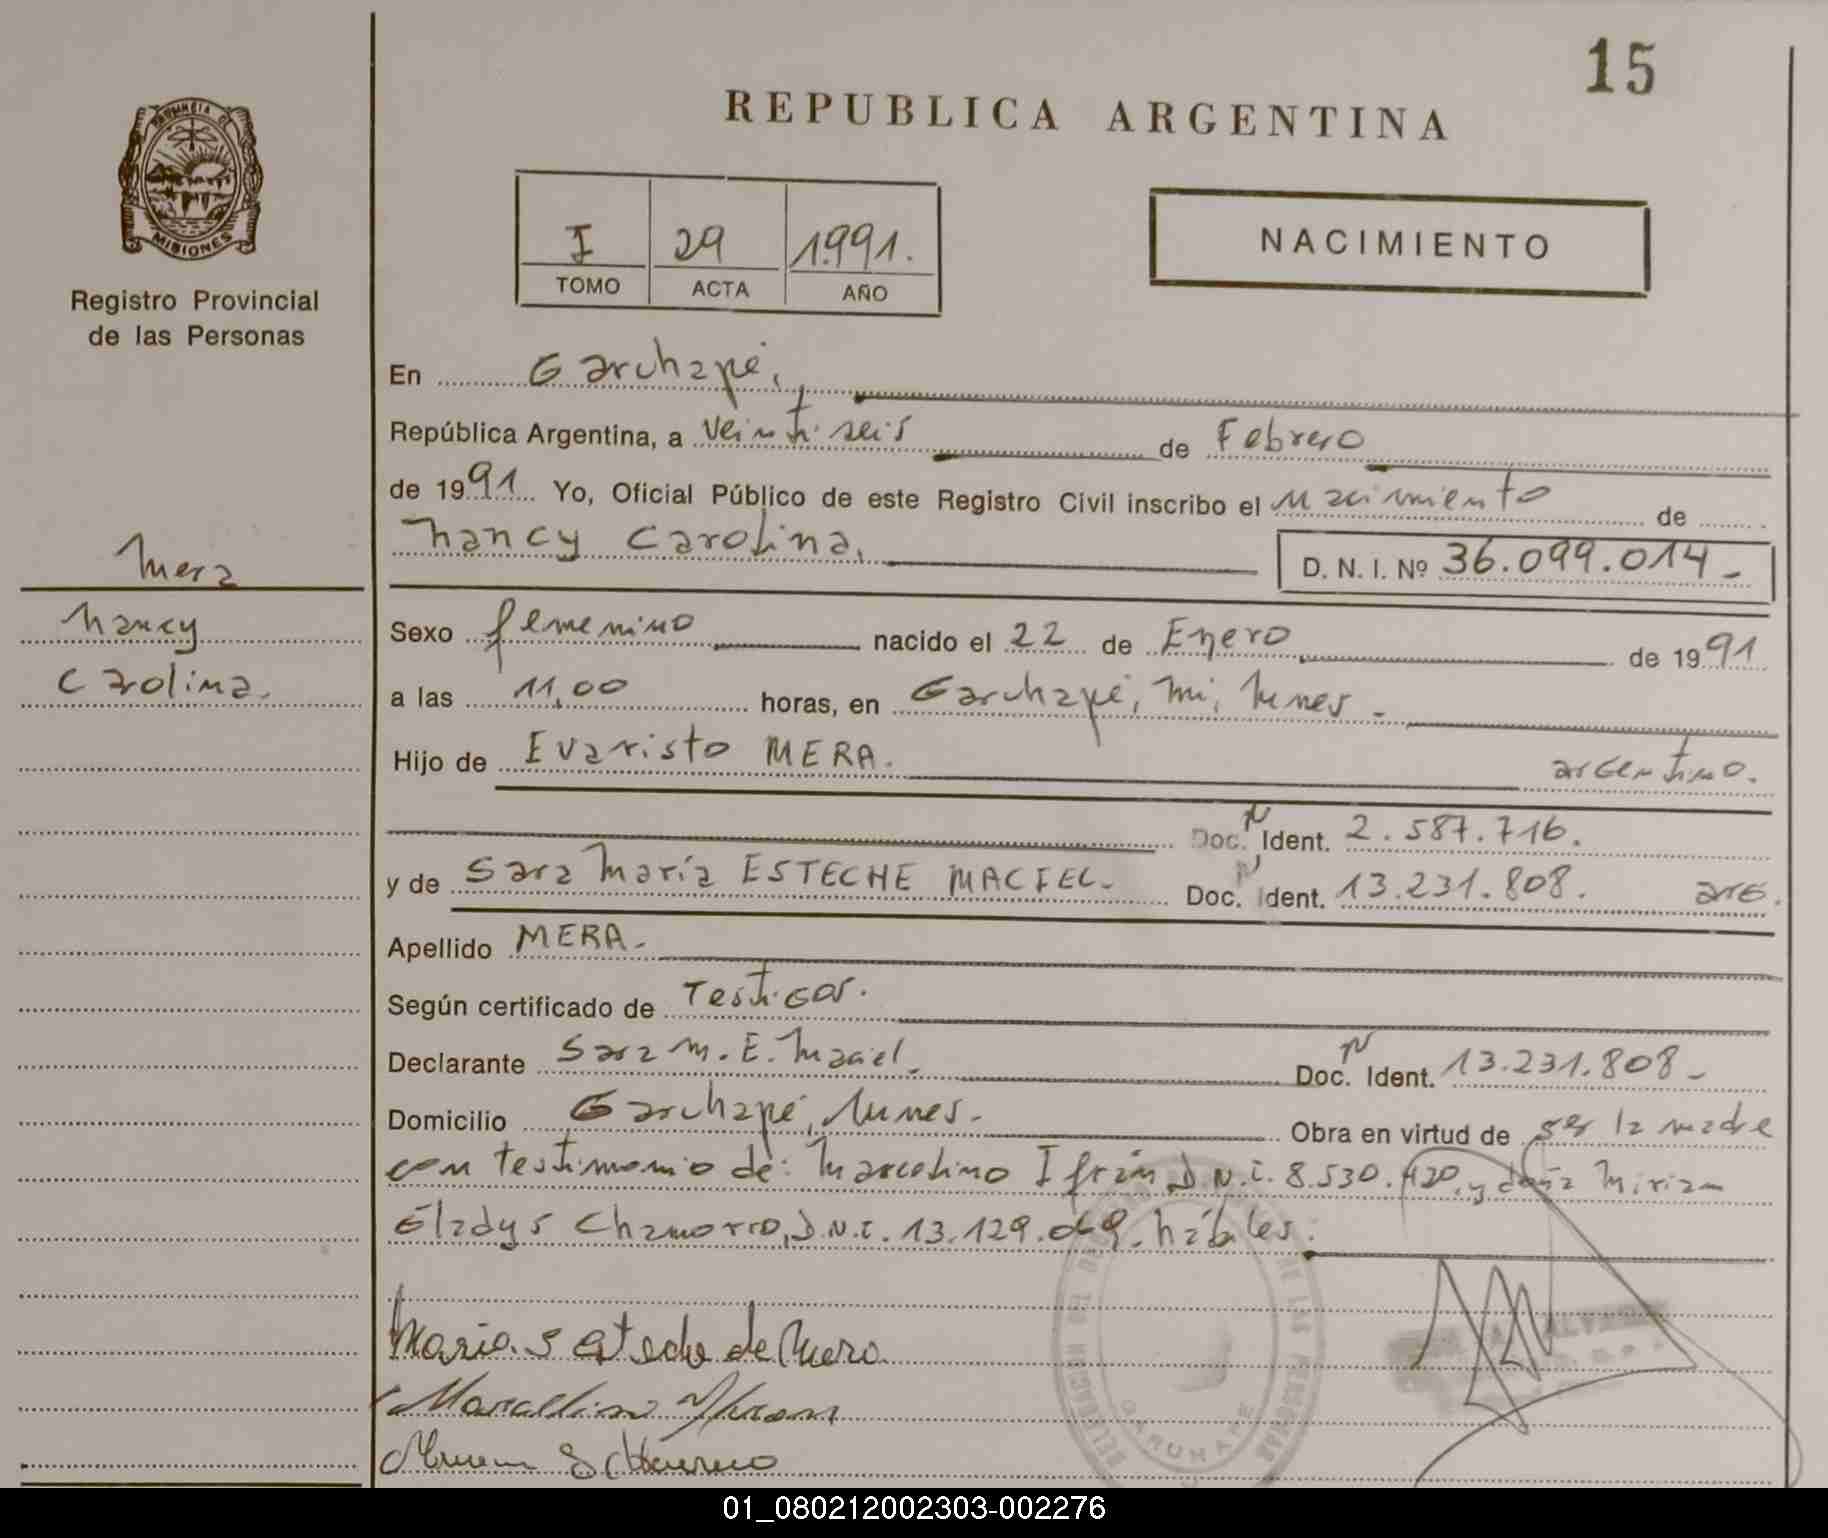 15
REPUBLICA ARGENTINA
PROVINCIA DE
MISIONES
Registro Provincial
de las Personas
I 29 1.991.
TOMO ACTA AÑO
NACIMIENTO
En Garuhapé,
República Argentina, a veintiseis de Febrero
de 1991. Yo, Oficial Público de este Registro Civil inscribo el nacimiento de
Nancy Carolina,
D. N. I. Nº 36.099.014-
Mera
Nancy
Carolina.
Sexo femenino nacido el 22 de Enero de 1991
a las 11,00 horas, en Garuhapé, Mi,
Hijo de Evaristo MERA. argentino.
Doc. N Ident. 2.587.716.
y de Sara María ESTECHE MACIEL- Doc. N Ident. 13.231.808. arg.
Apellido MERA.
Según certificado de Testigos.
Declarante Sara M. E. Maciel. Doc. N Ident. 13.231.808-
Domicilio Garuhapé, Obra en virtud de ser la madre
con testimonio de: Marcelino Ifrán D.N.I. 8.530.420, y doña Miriam
Gladys Chamorro, D.N.I. 13.129.069. hábiles.
Maria S Esteche de Mera
GARUHAPE
01_080212002303-002276